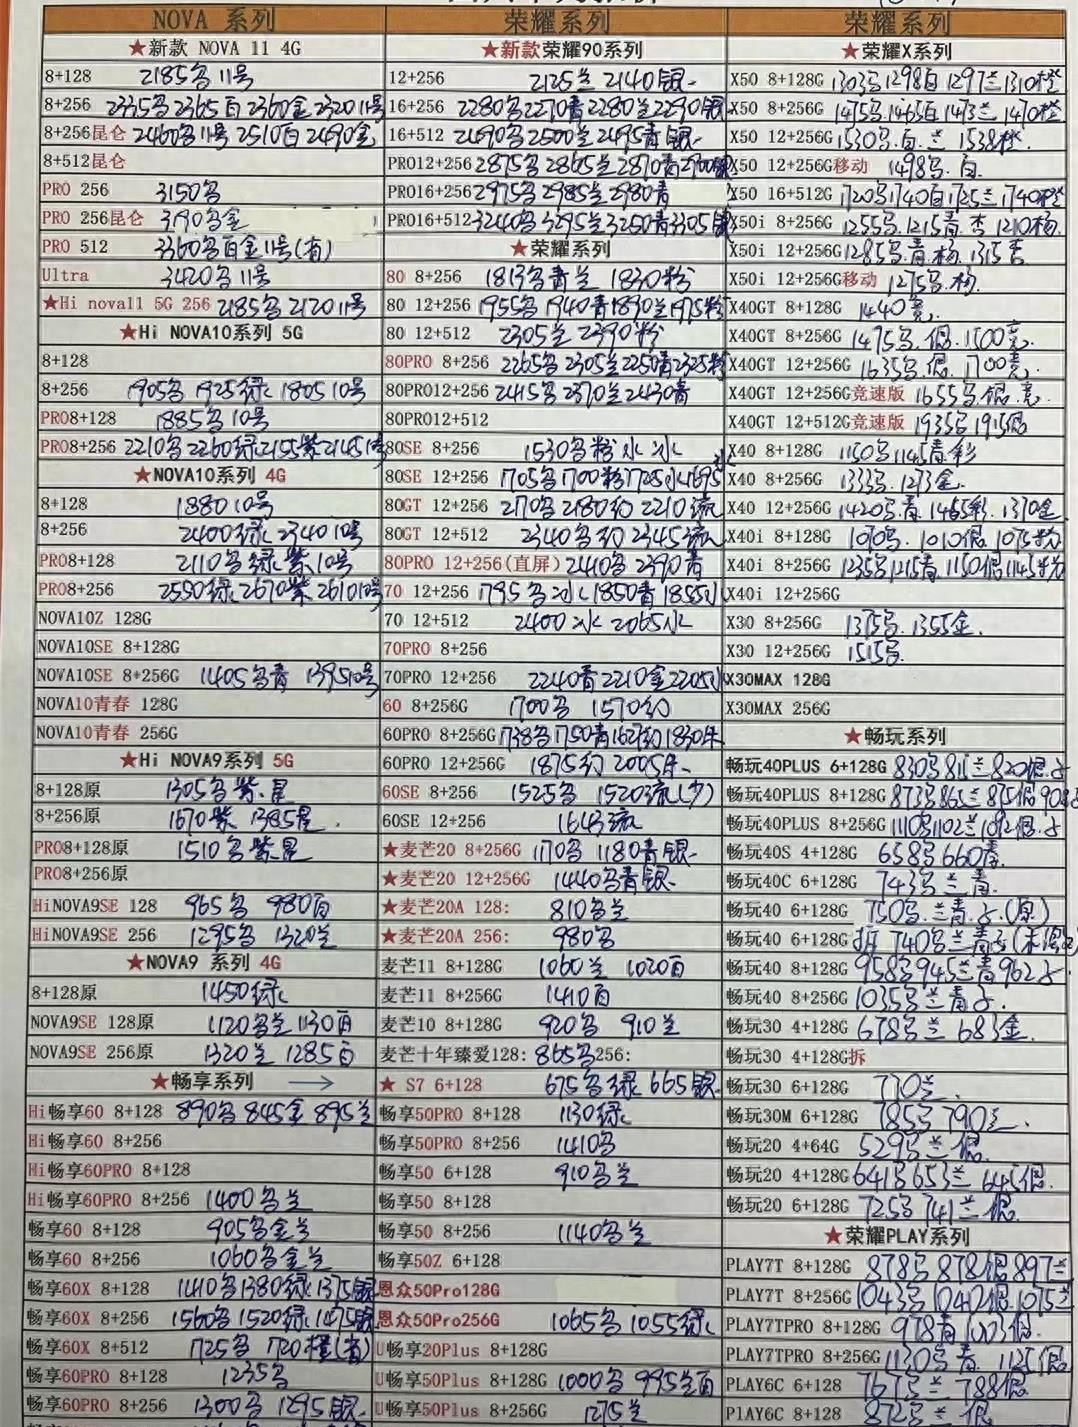 NOVA 系列
★新款 NOVA 11 4G
8+128 2185名 11号
8+256 2335名 2365百 2360金 2320 11号
8+256昆仑 2460名 11号 2510百 2490金
8+512昆仑
PRO 256 3150名
PRO 256昆仑 3190名金
PRO 512 3360名百金11号(有)
Ultra 3420名11号
★Hi nova11 5G 256 2185名 2120 11号
★Hi NOVA10系列 5G
8+128
8+256 1905名 1925绿 1805 10号
PRO8+128 1885名 10号
PRO8+256 2210名 2260绿 2155紫 2145 10号
★NOVA10系列 4G
8+128 1880 10号
8+256 2400绿 2340 10号
PRO8+128 2110名绿紫10号
PRO8+256 2550绿 2670紫 2610 10号
NOVA10Z 128G
NOVA10SE 8+128G
NOVA10SE 8+256G 1405名青 1395 10号
NOVA10青春 128G
NOVA10青春 256G
★Hi NOVA9系列 5G
8+128原 1305名紫.星
8+256原 1670紫 1385星.
PRO8+128原 1510名紫星
PRO8+256原
HiNOVA9SE 128 965名 980百
HiNOVA9SE 256 1295名 1320兰
★NOVA9 系列 4G
8+128原 1450绿
NOVA9SE 128原 1120名兰 1130百
NOVA9SE 256原 1320兰 1285百
★畅享系列 →
Hi畅享60 8+128 890名 845金 895兰
Hi畅享60 8+256
Hi畅享60PRO 8+128
Hi畅享60PRO 8+256 1400名兰
畅享60 8+128 905名金兰
畅享60 8+256 1060名金兰
畅享60X 8+128 1410名 1380绿 1375银
畅享60X 8+256 1560名 1520绿 1475银
畅享60X 8+512 1725名 1720橙(有)
畅享60PRO 8+128 1235名
畅享60PRO 8+256 1300名 1295银
荣耀系列
★新款荣耀90系列
12+256 2125兰 2140银
16+256 2280名 2270青 2280兰 2290银
16+512 2490名 2500兰 2495青银
PRO12+256 2875名 2865兰 2870青
PRO16+256 2975名 2985兰 2980青
PRO16+512 3240名 3295兰 3250青 3305银
★荣耀系列
80 8+256 1813名青兰 1830粉
80 12+256 1955名 1940青 1890兰 1975粉
80 12+512 2305兰 2390粉
80PRO 8+256 2265名 2305兰 2250青 2325粉
80PRO12+256 2415名 2370兰 2430青
80PRO12+512
80SE 8+256 1530名粉水冰
80SE 12+256 1705名 1700粉 1725冰 1695水
80GT 12+256 2170名 2180幻 2210流
80GT 12+512 2340名幻 2345流
80PRO 12+256(直屏) 2410名 2390青
70 12+256 1795名冰 1850青 1855水
70 12+512 2400冰 2065水
70PRO 8+256
70PRO 12+256 2240青 2210金 2205冰
60 8+256G 1700名 1570幻
60PRO 8+256G 1738名 1750青 1627幻 1830朱
60PRO 12+256G 1875幻 2005朱
60SE 8+256 1525名 1520流(少)
60SE 12+256 1643流
★麦芒20 8+256G 1170名 1180青银
★麦芒20 12+256G 1440名青银
★麦芒20A 128: 810名兰
★麦芒20A 256: 980名
麦芒11 8+128G 1060兰 1020百
麦芒11 8+256G 1410百
麦芒10 8+128G 920名 910兰
麦芒十年臻爱128: 865名256:
★ S7 6+128 675名绿 665银
畅享50PRO 8+128 1130绿
畅享50PRO 8+256 1410名
畅享50 6+128 910名兰
畅享50 8+128
畅享50 8+256 1140名兰
畅享50Z 6+128
恩众50Pro128G
恩众50Pro256G 1065名 1055绿
U畅享20Plus 8+128G
U畅享50Plus 8+128G 1000名 995兰百
U畅享50Plus 8+256G 1275兰
荣耀系列
★荣耀X系列
X50 8+128G 1303名 1298白 1297兰 1310橙
X50 8+256G 1475名 1465白 1473兰 1470橙
X50 12+256G 1530名.白.兰 1538橙.
X50 12+256G移动 1498名.白.
X50 16+512G 1720名 1740白 1725兰 1740橙
X50i 8+256G 1255名.1215青.杏 1210杨.
X50i 12+256G 1285名.青.杨.1315杏
X50i 12+256G移动 1275名.杨.
X40GT 8+128G 1440竞.
X40GT 8+256G 1475名.银.1500竞.
X40GT 12+256G 1635名.银.1700竞.
X40GT 12+256G竞速版 1655名.银.竞.
X40GT 12+512G竞速版 1935名 1915银
X40 8+128G 1150名 1145青.彩
X40 8+256G 1333名.1273金.
X40 12+256G 1420名.青.1465彩.1370金.
X40i 8+128G 1070名.1010银.1075粉
X40i 8+256G 1235名 1215青.1150银 1145粉
X40i 12+256G
X30 8+256G 1375名.1355金.
X30 12+256G 1515名.
X30MAX 128G
X30MAX 256G
★畅玩系列
畅玩40PLUS 6+128G 830名 811兰 820银.
畅玩40PLUS 8+128G 873名 865兰 875银
畅玩40PLUS 8+256G 1110名 1102兰 1092银.
畅玩40S 4+128G 658名 660青.
畅玩40C 6+128G 743名.兰.青.
畅玩40 6+128G 750名.兰青.(原)
畅玩40 6+128G 拆 740名兰青
畅玩40 8+128G 958名 945兰青 962
畅玩40 8+256G 1035名兰青
畅玩30 4+128G 678名兰 683金.
畅玩30 4+128G拆
畅玩30 6+128G 770兰.
畅玩30M 6+128G 785名 790兰.
畅玩20 4+64G 529名兰银.
畅玩20 4+128G 641名 653兰 645银.
畅玩20 6+128G 725名 741兰银.
★荣耀PLAY系列
PLAY7T 8+128G 878名 878银 897兰
PLAY7T 8+256G 1043名 1042银 1075兰
PLAY7TPRO 8+128G 978青 1003银.
PLAY7TPRO 8+256G 1130名青. 1125银
PLAY6C 6+128 767名兰 788银
PlAY6C 8+128 872名兰银